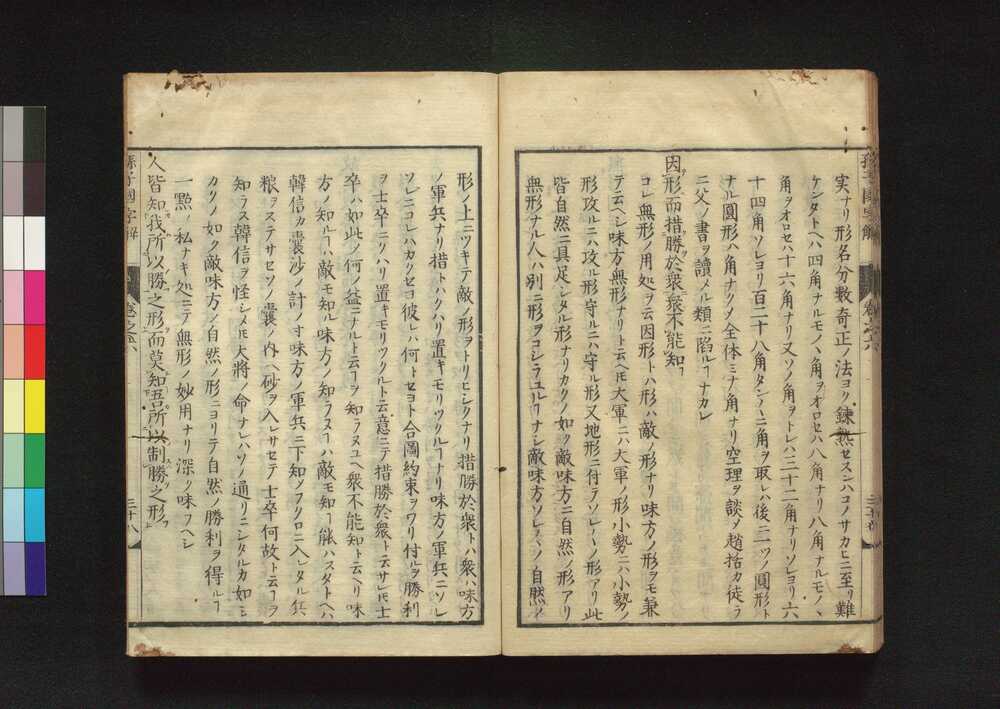 実ナリ形名分数奇正ノ法ヨク鍊熟セスンハコノサカヒニ至リ難
ケンタトヘハ四角ナルモノヽ角ヲオロセハ八角ナリ八角ナルモノヽ
角ヲオロセハ十六角ナリ又ソノ角ヲトレハ三十二角ナリソレヨリ六
十四角ソレヨリ百二十八角タン〱ニ角ヲ取レハ後ニ一ツノ圓形ト
ナル圓形ハ角ナクノ全体ミナ角ナリ空理ヲ談ノ趙括カ徒ラ
ニ父ノ書ヲ讀メル類ニ陷ルヿナカレ
因形而措勝於衆衆不能知
コレ無形ノ用処ヲ云因形トハ形ハ敵ノ形ナリ味方ノ形ヲモ兼
テ云ヘシ味方無形ナリト云ヘ𪜈大軍ニハ大軍ノ形小勢ニハ小勢ノ
形攻ルニハ攻ル形守ルニハ守ル形又地形ニ付テソレ〱ノ形アリ此
皆自然ニ具足シタル形ナリカクノ如ク敵味方ニ自然ノ形アリ
無形ナル人ハ別ニ形ヲコシラユルヿナシ敵味方ソレ〱ノ自然ノ
形ノ上ニツキテ敵ノ形ヲトリヒシクナリ措勝於衆トハ衆ハ味方
ノ軍兵ナリ措トハクハリ置キモリツクルヿナリ味方ノ軍兵ニソレ
ソレニコレハカクセヨ彼レハ何トセヨト合圖約束ヲワリ付ルヲ勝利
ヲ士卒ニクハリ置キモリツクルト云意ニテ措勝於衆ト云サレ𪜈士
卒ハ如此ノ何ノ益ニナルト云ヿヲ知ラヌユヘ衆不能知ト云ヘリ味
方ノ知ルヿハ敵モ知ル味方ノ知ラヌヿハ敵モ知ヿ能ハスタトヘハ
韓信カ囊沙ノ計ノ寸味方ノ軍兵ニ下知ノフクロニ入レタル兵
粮ヲステサセソノ囊ノ内ヘ砂ヲ入レサセテ士卒何故ト云ヿヲ
知ラス韓信ヲ怪シメ𪜈大將ノ命ナレハソノ通リニシタルカ如シ
カクノ如ク敵味方ノ自然ノ形ニヨリテ自然ノ勝利ヲ得ルヿ
一點ノ私ナキ処ニテ無形ノ妙用ナリ深ク味フヘシ
人皆知我所以勝之形而莫知吾所以制勝之形
孫子國字解
卷之六
三十八